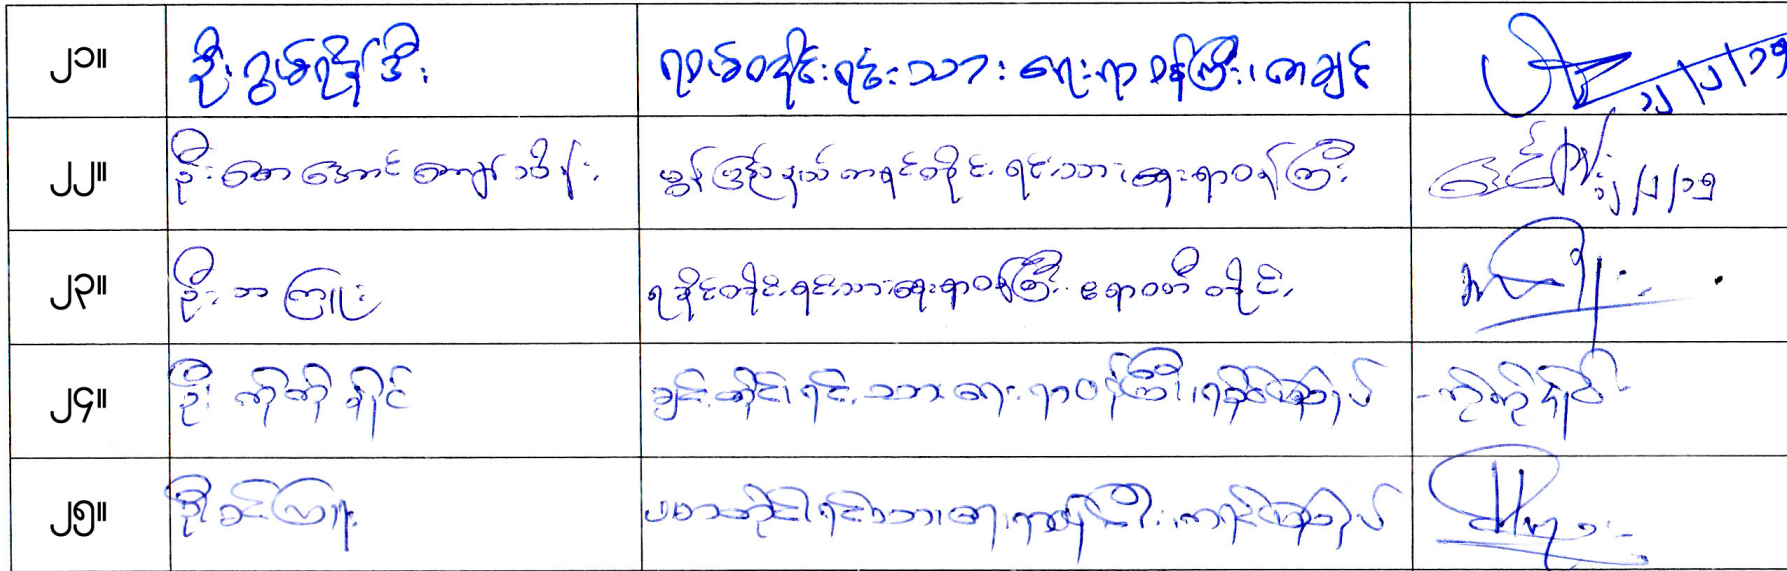 ၂၁။ ဦးဂွမ်ရိန်ဒီး ရဝမ်တိုင်းရင်းသားရေးရာဝန်ကြီး၊ ကချင် ၁၂/၂/၁၅
၂၂။ ဦးစောအောင်ကျော်သိန်း မွန်ပြည်နယ် ကရင်တိုင်းရင်းသားရေးရာဝန်ကြီး ၁၂/၂/၁၅
၂၃။ ဦးဘကြူး ရခိုင်တိုင်းရင်းသားရေးရာဝန်ကြီး ဧရာဝတီတိုင်း
၂၄။ ဦးကိုကိုနိုင် ချင်းတိုင်းရင်းသားရေးရာဝန်ကြီး၊ ရခိုင်ပြည်နယ် ကိုကိုနိုင်
၂၅။ ဦးခင်ကြူး ဗမာတိုင်းရင်းသားရေးရာဝန်ကြီး၊ ကရင်ပြည်နယ်